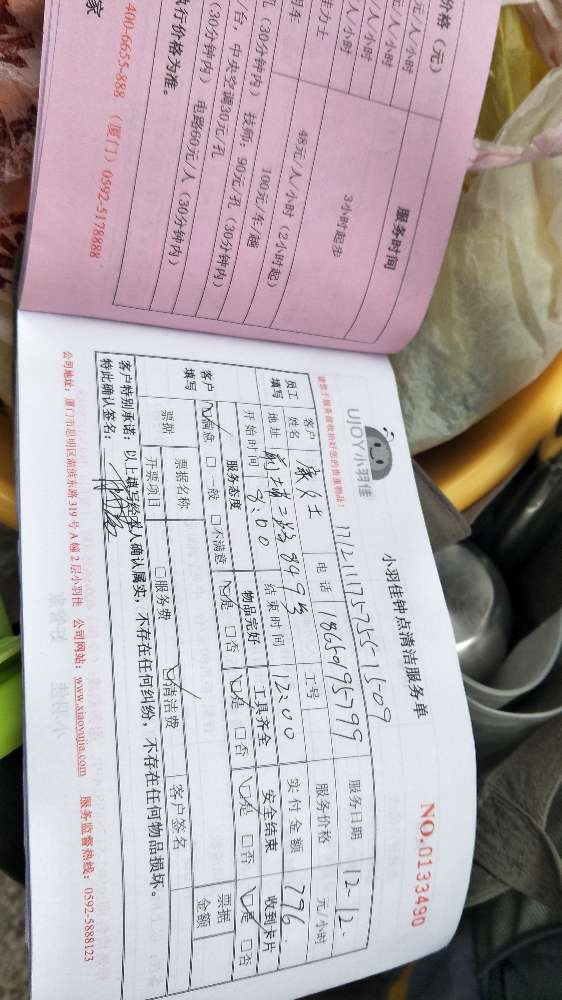 价格（元）
服务时间
元/人/小时
元/人/小时
/人/小时
3小时起步
48元/人/小时（2小时起）
100元/车/趟
孔（30分钟内） 技师：90元/孔（30分钟内）
/台，中央空调30元/孔
（30分钟内） 电路60元/人（30分钟内）
执行价格为准。
400-6655-888 （厦门）0592-5178888
家
UJOY小羽佳
小羽佳钟点清洁服务单
NO.0133490
请您于服务前收拾好您的贵重物品！
员工填写
客户姓名
女士
电话
1865095799
服务日期
12.12.
地址
二路849号
工号
服务价格
元/小时
开始时间
8:00
结束时间
12:00
实付金额
296
客户填写
服务态度
物品完好
工具齐全
安全结束
收到卡片
☑满意 □一般 □不满意
☑是 □否
☑是 □否
☑是 □否
☑是 □否
票据
票据名称
客户签名
票据金额
开票项目
□服务费
☑清洁费
客户特别承诺：以上填写经本人确认属实，不存在任何纠纷，不存在任何物品损坏。
特此确认签名：
公司地址：厦门市思明区湖滨东路319号A幢2层小羽佳 公司网站：www.xiaoyujia.com 服务监督热线：0592-5888123